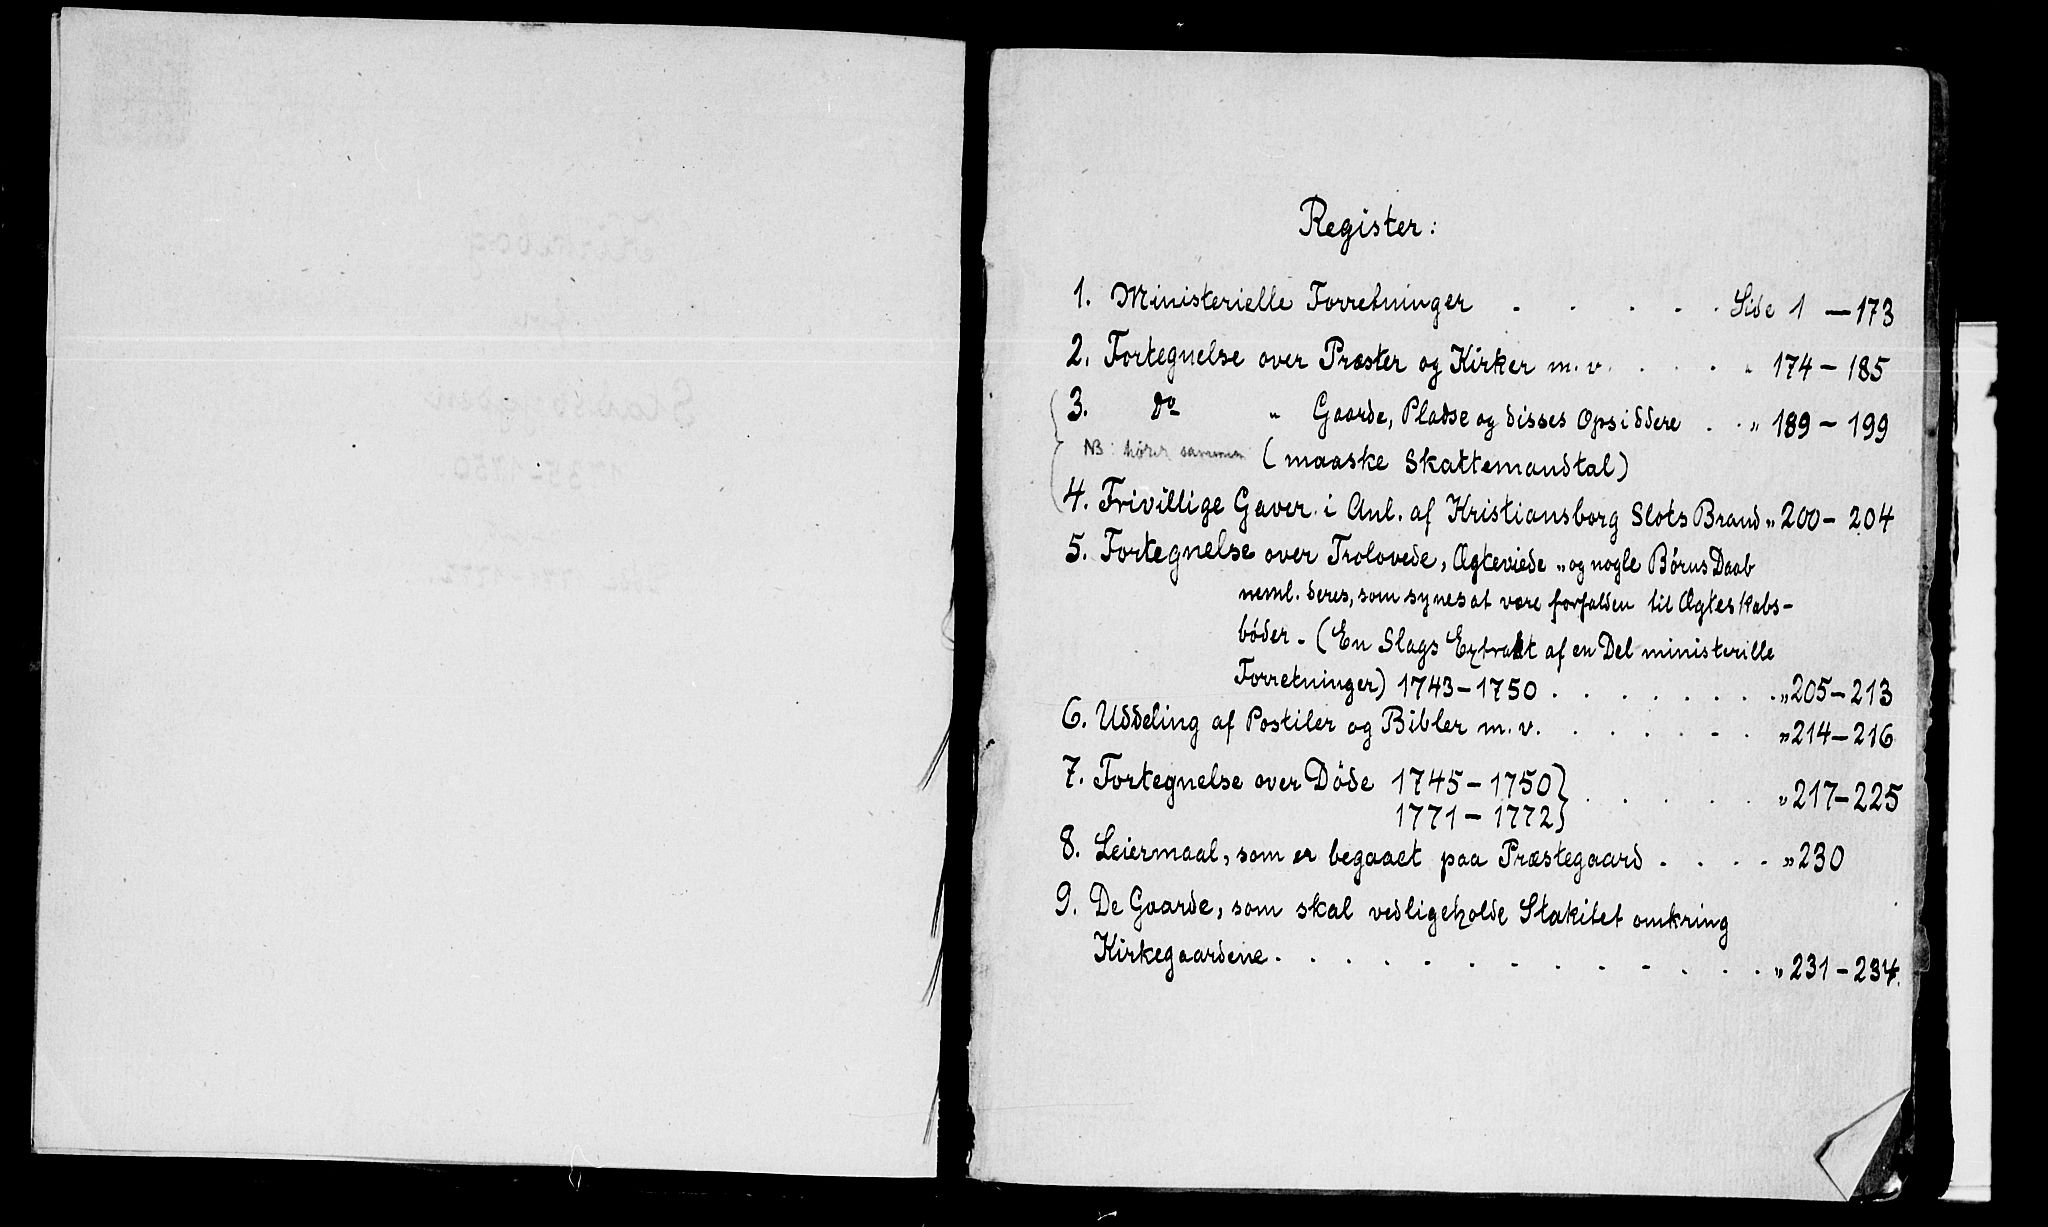 Register:
1. Ministerielle Forretninger . . . . . Side 1 — 173
2. Fortegnelse over Præster og Kirker m. v. . . . . „ 174 — 185
3. Do „ Gaarde, Pladse og disses Opsiddere . . „ 189 — 199
NB: hører sammen (maaske Skattemandtal)
4. Frivillige Gaver i Anl. af Kristiansborg Slots Brand „ 200 — 204
5. Fortegnelse over Trolovede, Ægteviede „ og nogle Børns Daab
neml. deres, som synes at være forfalden til Ægteskabs-
bøder – (En Slags Extrakt af en Del ministerille
Forretninger) 1743 – 1750 . . . . . . . . „ 205 – 213
6. Uddeling af Postiler og Bibler m. v. . . . . . . „ 214 – 216
7. Fortegnelse over Döde 1745 – 1750 } . . . . . „ 217 – 225
1771 – 1772 }
8. Leiermaal, som er begaaet paa Præstegaard . . . . „ 230
9. De Gaarde, som skal vedligeholde Stakitet omkring
Kirkegaardene . . . . . . . . . . . . . „ 231 – 234.